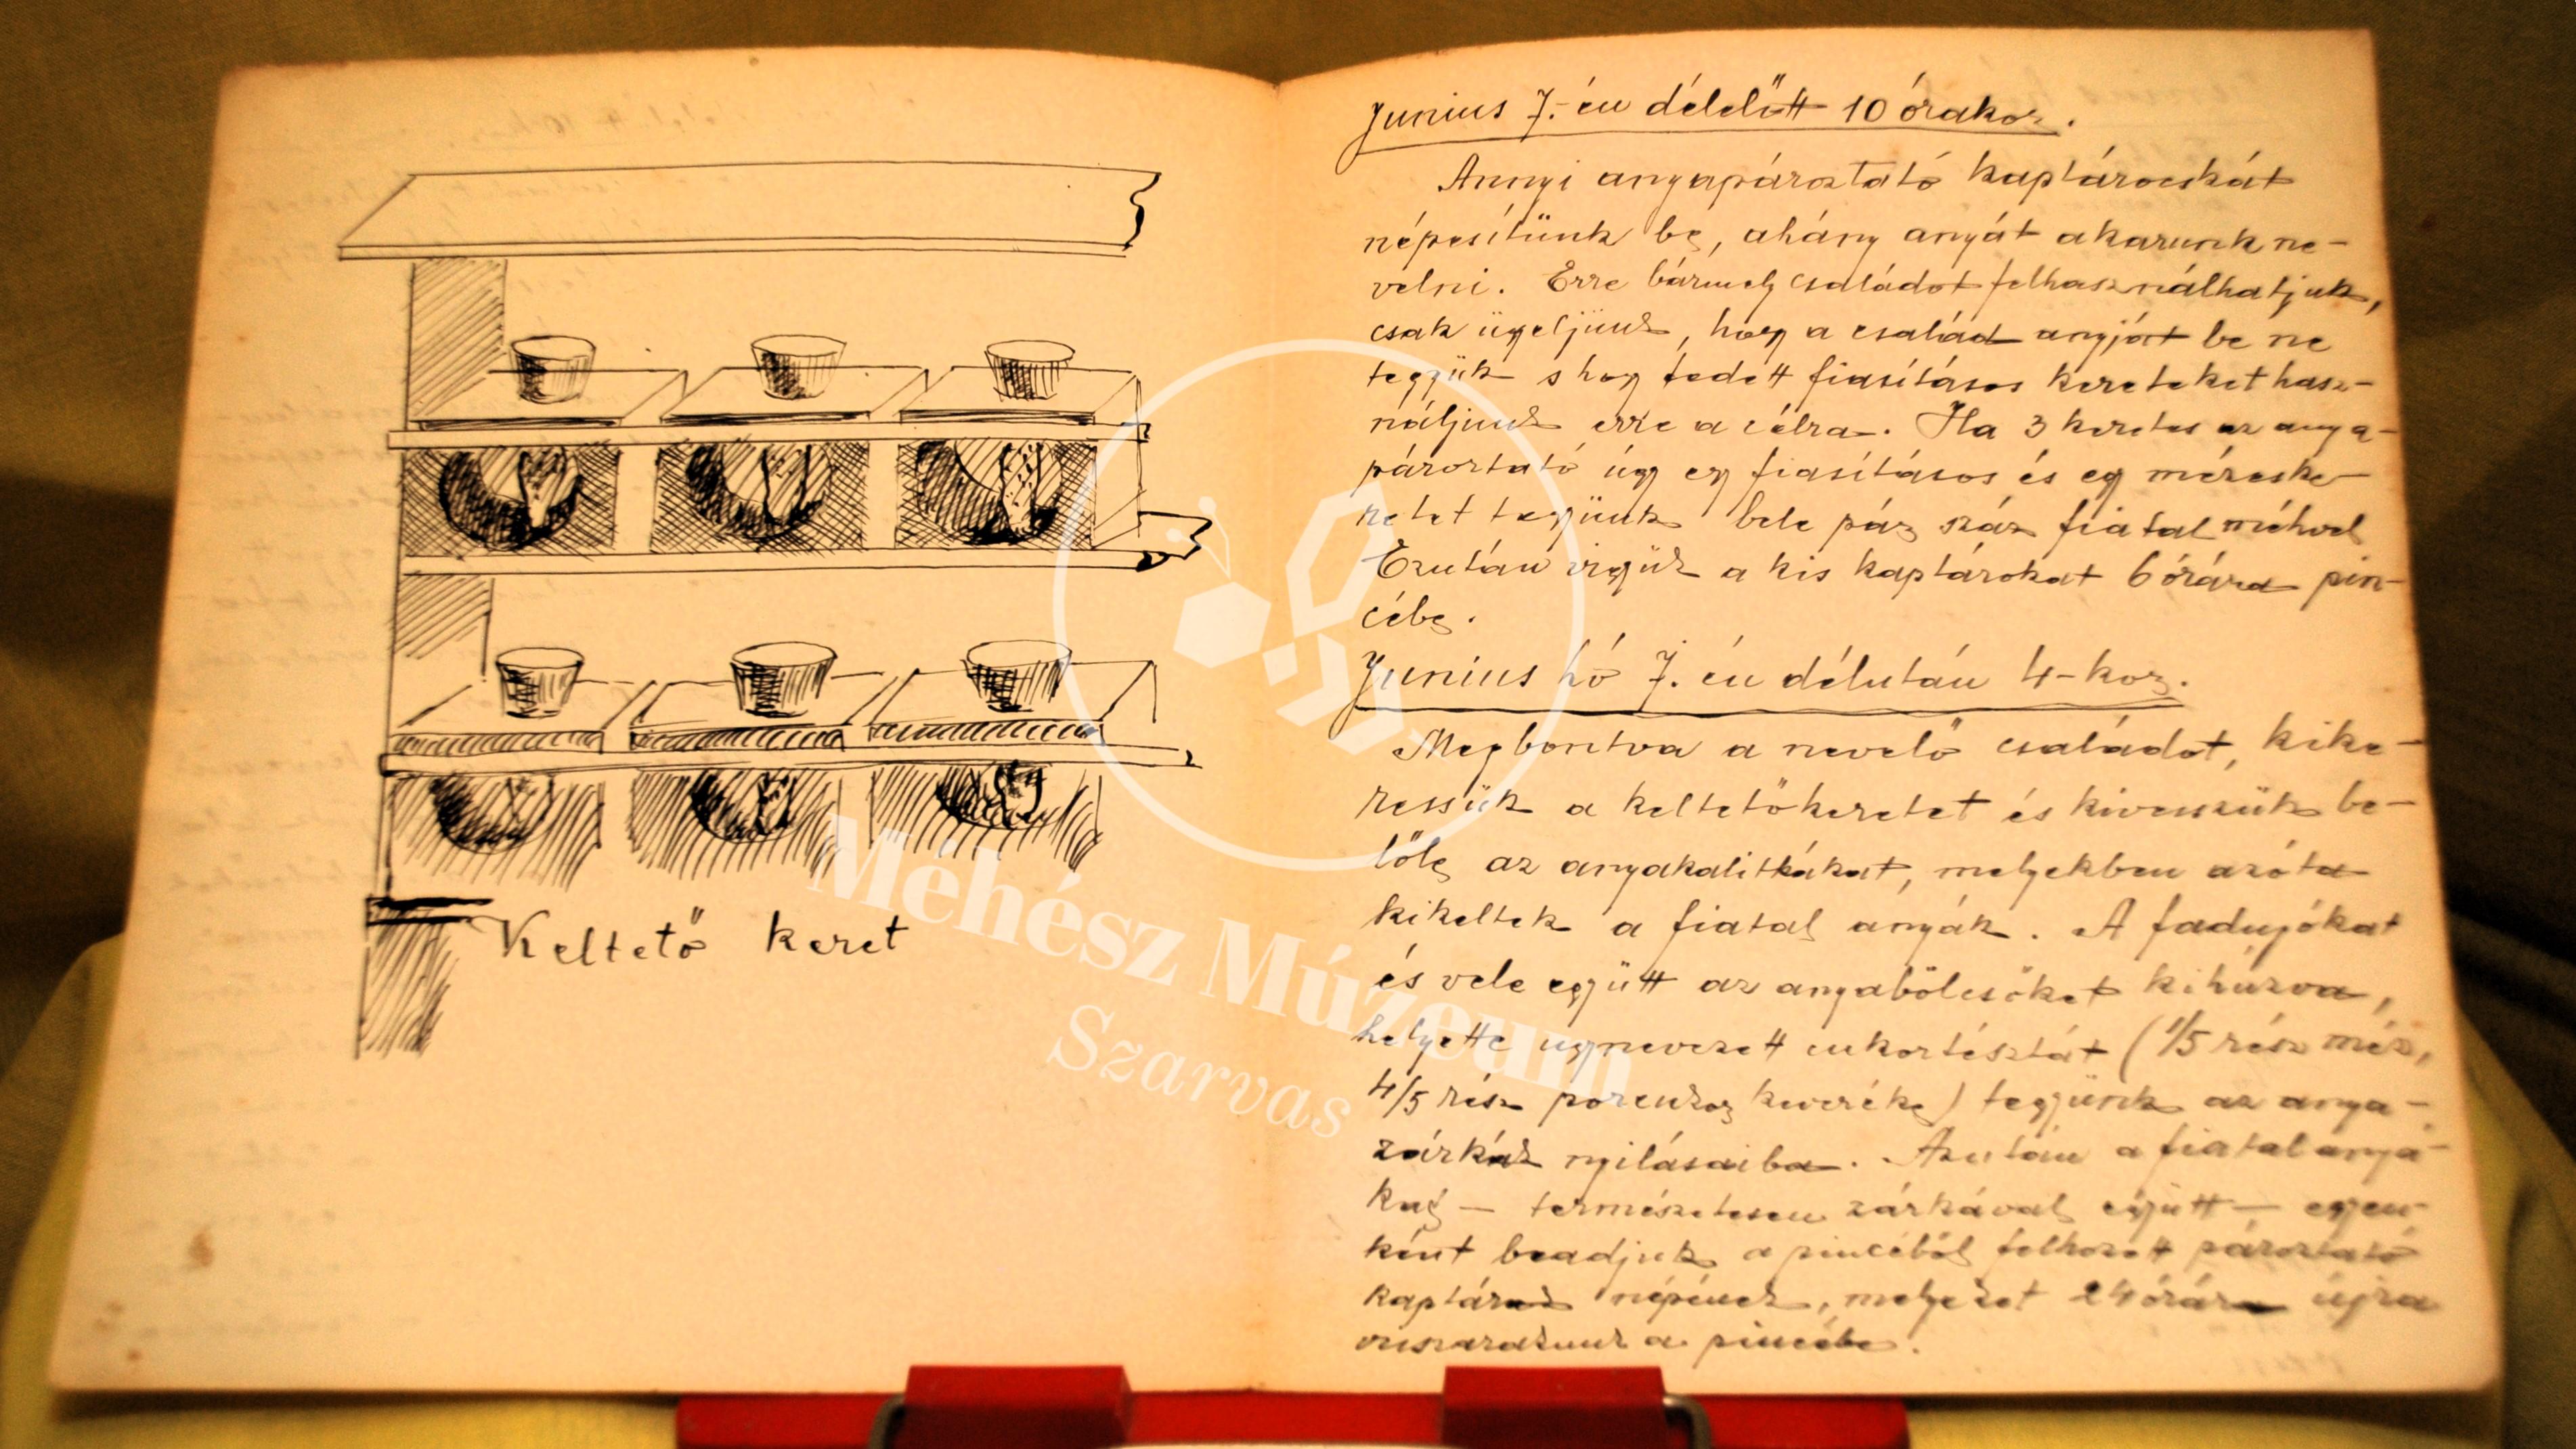 Keltető keret
Junius 7.-én délelőtt 10 órakor.
Annyi anyapároztató kaptárocskát
népesítünk be, ahány anyát akarunk ne-
velni. Erre bármely családot felhasználhatjuk,
csak ügyeljünk, hogy a család anyját be ne
tegyük s hogy fedett fiasításos kereteket hasz-
náljunk erre a célra. Ha 3 keretes az anya-
pároztató úgy egy fiasításos és egy mézeske-
retet tegyünk bele pár száz fiatal méhvel
Ezután vigyük a kis kaptárokat 6 órára pin-
cébe.
Junius hó 7.én délután 4-kor.
Megbontva a nevelő családot, kike-
ressük a keltetőkeretet és kivesszük be-
lőle az anyakalitkákat, melyekben azóta
kikeltek a fiatal anyák. A fadugókat
és vele együtt az anyabölcsőket kihúzva,
helyette úgynevezett cukortésztát (1/5 rész méz,
4/5 rész porcukor keveréke) tegyünk az anya-
zárkák nyilásaiba. Azután a fiatal anyá-
kat — természetesen zárkával együtt — egyen-
ként beadjuk a pincéből felhozott pároztató
kaptárak népének, melyeket 24 órára újra
visszarakunk a pincébe.
Méhész Múzeum
Szarvas